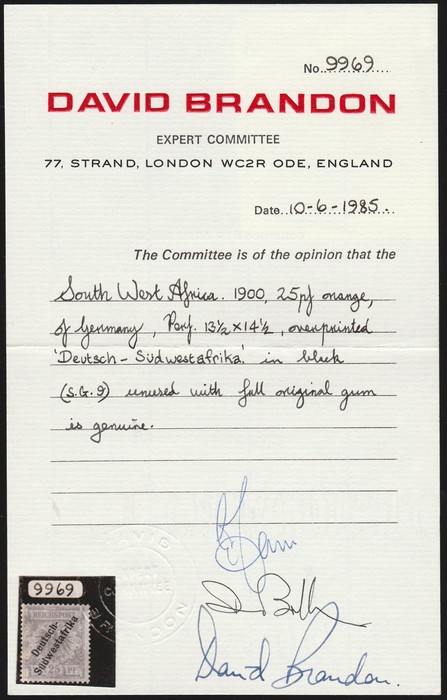 No. 9969
DAVID BRANDON
EXPERT COMMITTEE
77, STRAND, LONDON WC2R ODE, ENGLAND
Date. 10-6-1985.
The Committee is of the opinion that the
South West Africa. 1900, 25pf orange,
of Germany, Perf. 13½ x 14½, overprinted
'Deutsch-Südwestafrika' in black
(S.G.9) unused with full original gum
is genuine.
David Brandon.
9969
REICHSPOST
Deutsch-
Südwestafrika